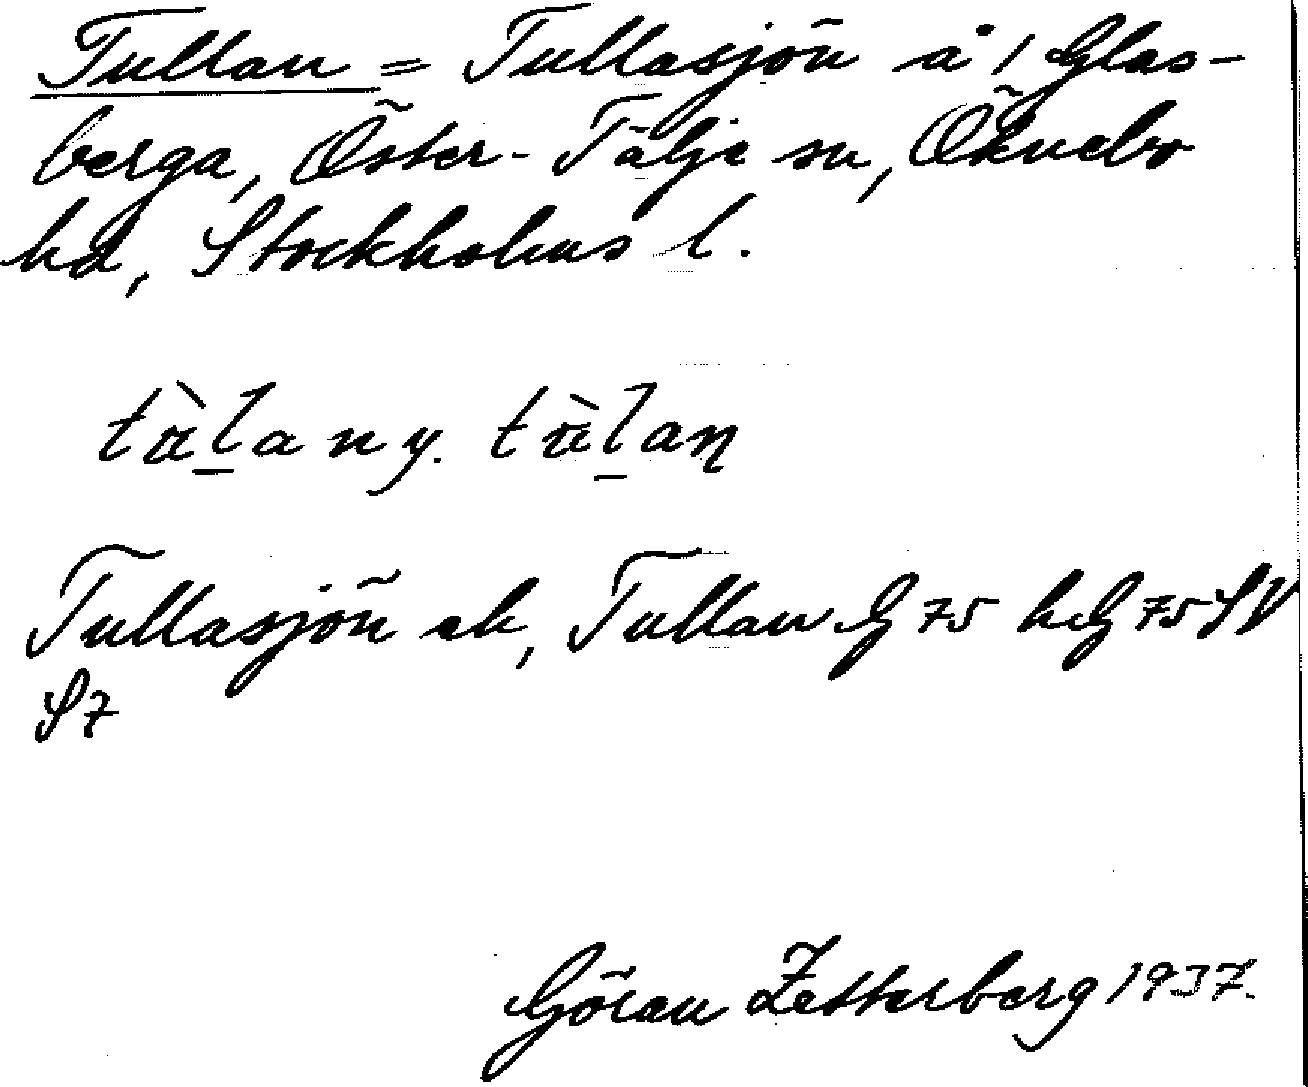 Tullan = Tullasjön å 1 Glas-
berga, Öster-Tälje sn, Öknebo
hd, Stockholms l.
tù̀lan y. tù̀laŋ
Tullasjön ek, Tullan G 75 hG 75 SV
S7
Göran Zetterberg 1937.